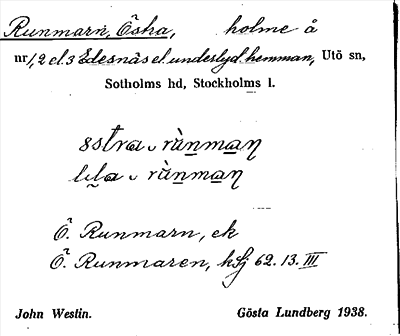 Runmarn, Östra, holme å
nr 1, 2 el. 3 Edesnäs el. underlyd. hemman, Utö sn,
Sotholms hd, Stockholms l.
östra ᴗ rùnmaƞ
lıla ᴗ rùnmaƞ
Ö. Runmarn, ek
Ö. Runmaren, ksj 62. 13. III
John Westin.
Gösta Lundberg 1938.